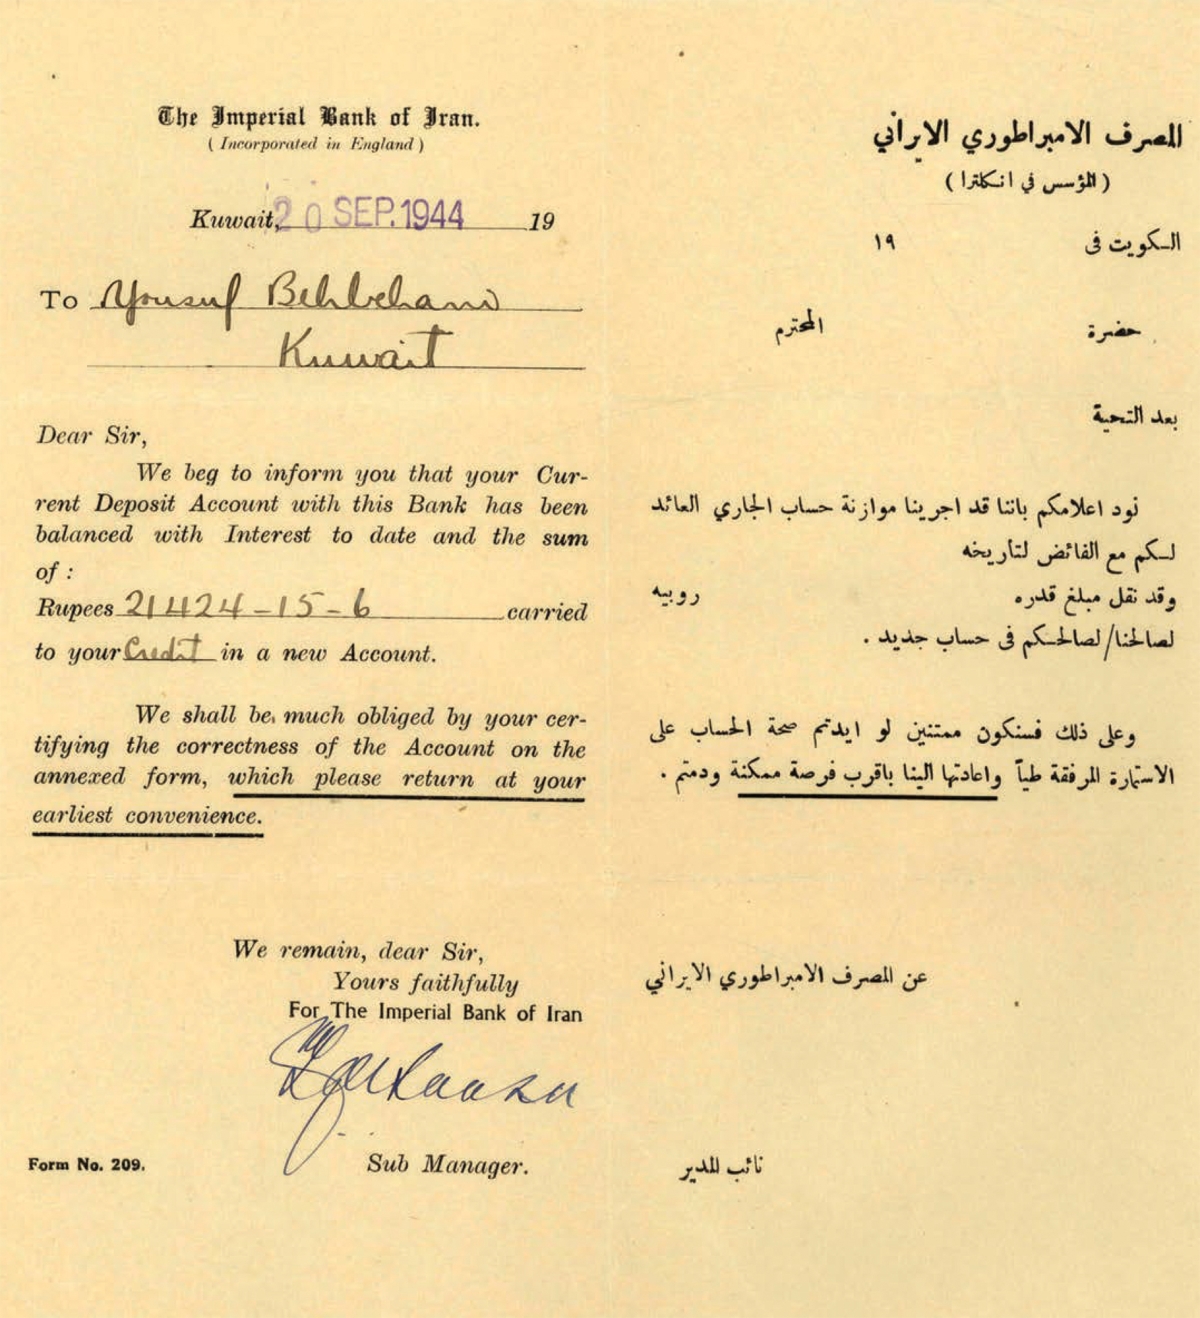 The Imperial Bank of Iran.
( Incorporated in England )
Kuwait, 20 SEP. 1944 19
To Yousuf Behbehani
Kuwait
Dear Sir,
We beg to inform you that your Cur-
rent Deposit Account with this Bank has been
balanced with Interest to date and the sum
of :
Rupees 21424-15-6 carried
to your Credit in a new Account.
We shall be much obliged by your cer-
tifying the correctness of the Account on the
annexed form, which please return at your
earliest convenience.
We remain, dear Sir,
Yours faithfully
For The Imperial Bank of Iran
Sub Manager.
Form No. 209.
المصرف الامبراطوري الايراني
( المؤسس في انكلترا )
الكويت فى ١٩
حضرة المحترم
بعد التحية
نود اعلامكم باننا قد اجرينا موازنة حساب الجاري العائد
لكم مع الفائض لتأريخه
وقد نقل مبلغ قدره روبيه
لصالحنا/لصالحكم فى حساب جديد .
وعلى ذلك فسنكون ممتنين لو ايدتم صحة الحساب على
الاستمارة المرفقة طياً واعادتها الينا باقرب فرصة ممكنة ودمتم .
عن المصرف الامبراطوري الايراني
نائب المدير